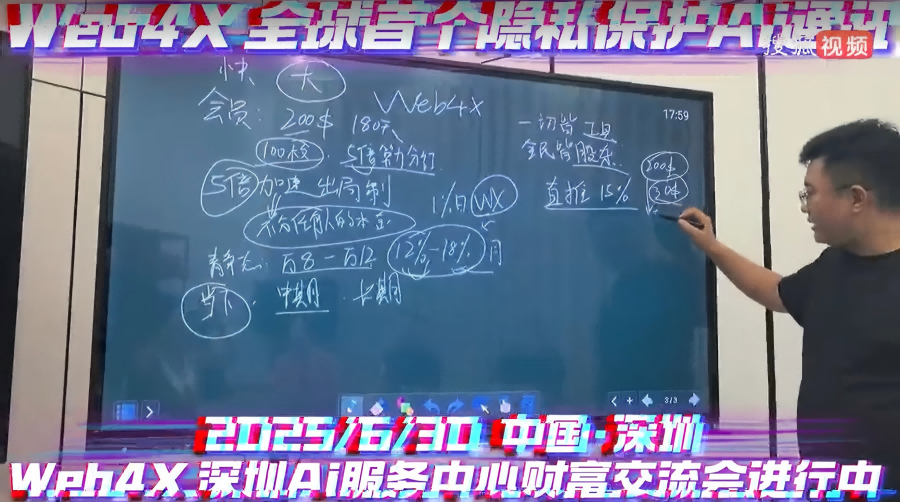 Web4X 全球首个隐私保护Ai通讯
搜狐视频
快 大
Web4x
17:59
会员: 200$ 180天
100枚 . 5倍算力分红
5倍加速出局制
1%日 WX
静态: 万8－万12 12%－18% 月
当下 . 中期 . 长期
一切皆工具
全民皆股东..
直推 15%
200$
30$
3/3
2025/6/30 中国·深圳
Web4X 深圳Ai服务中心财富交流会进行中